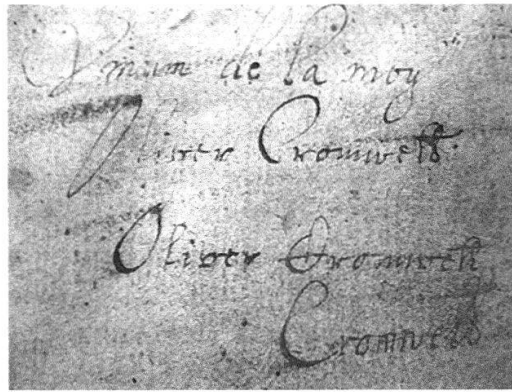 de la moy
Oliver Cromwell
Oliver Cromwell
Cromwell